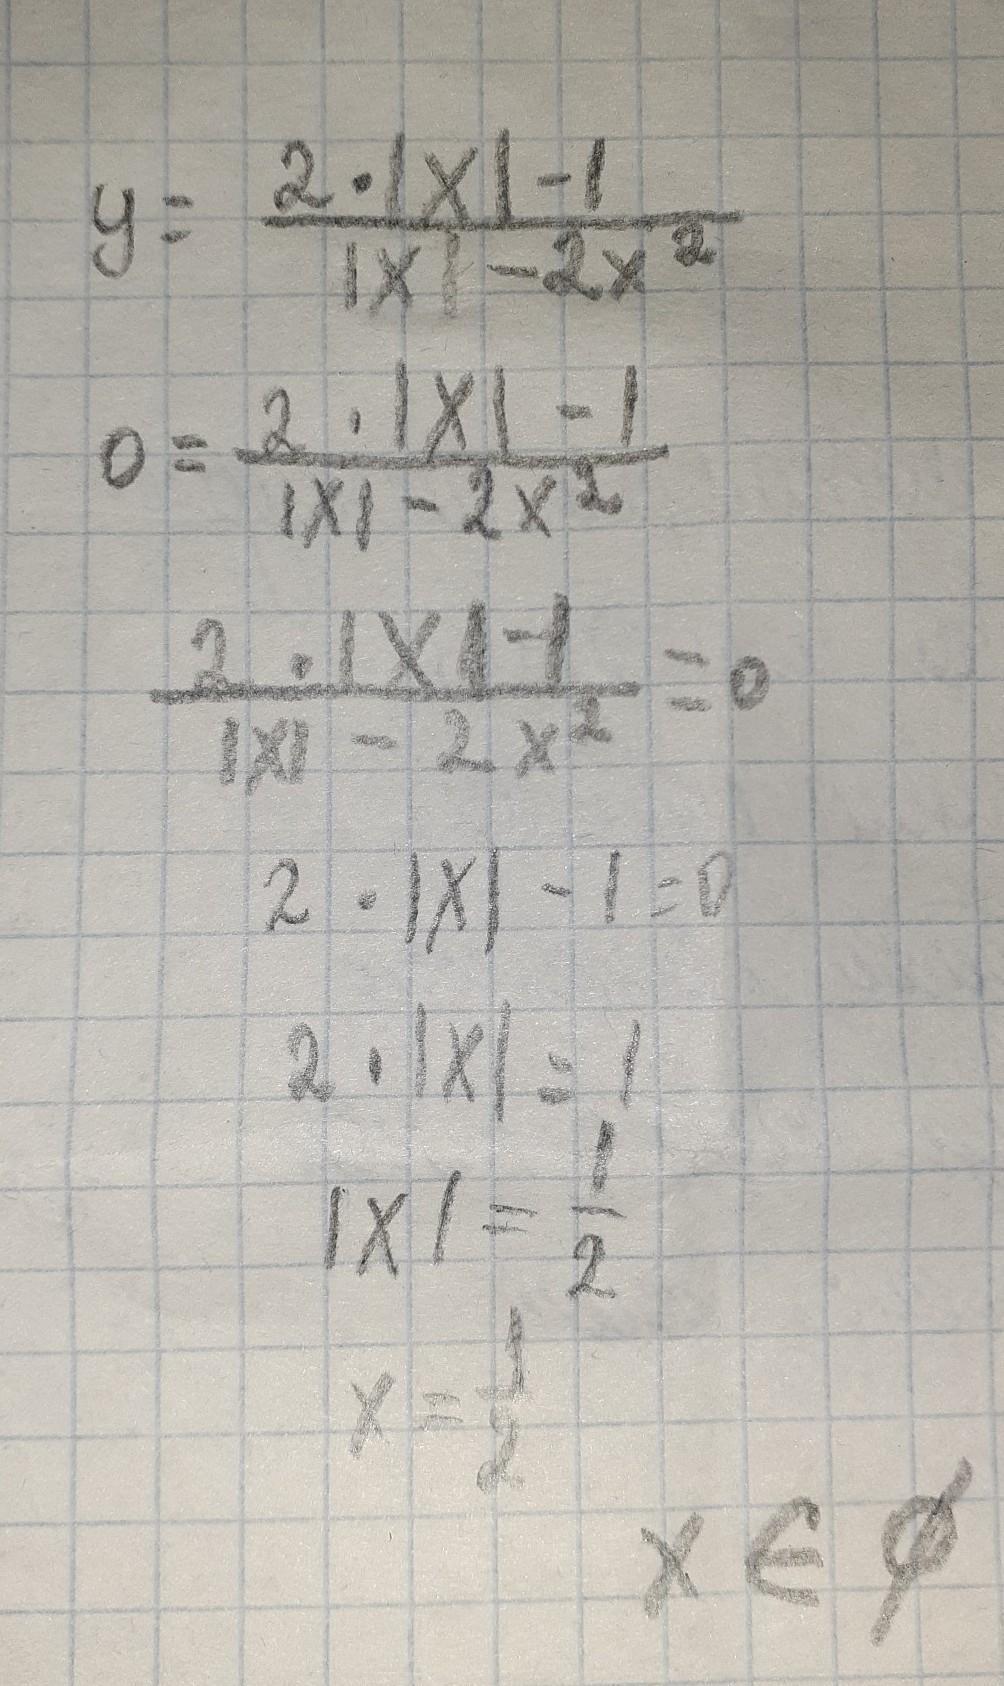 y = (2·|x|-1)/(|x|-2x²)
0 = (2·|x|-1)/(|x|-2x²)
(2·|x|-1)/(|x|-2x²) = 0
2·|x|-1=0
2·|x|=1
|x|=1/2
x=1/2
x∈∅